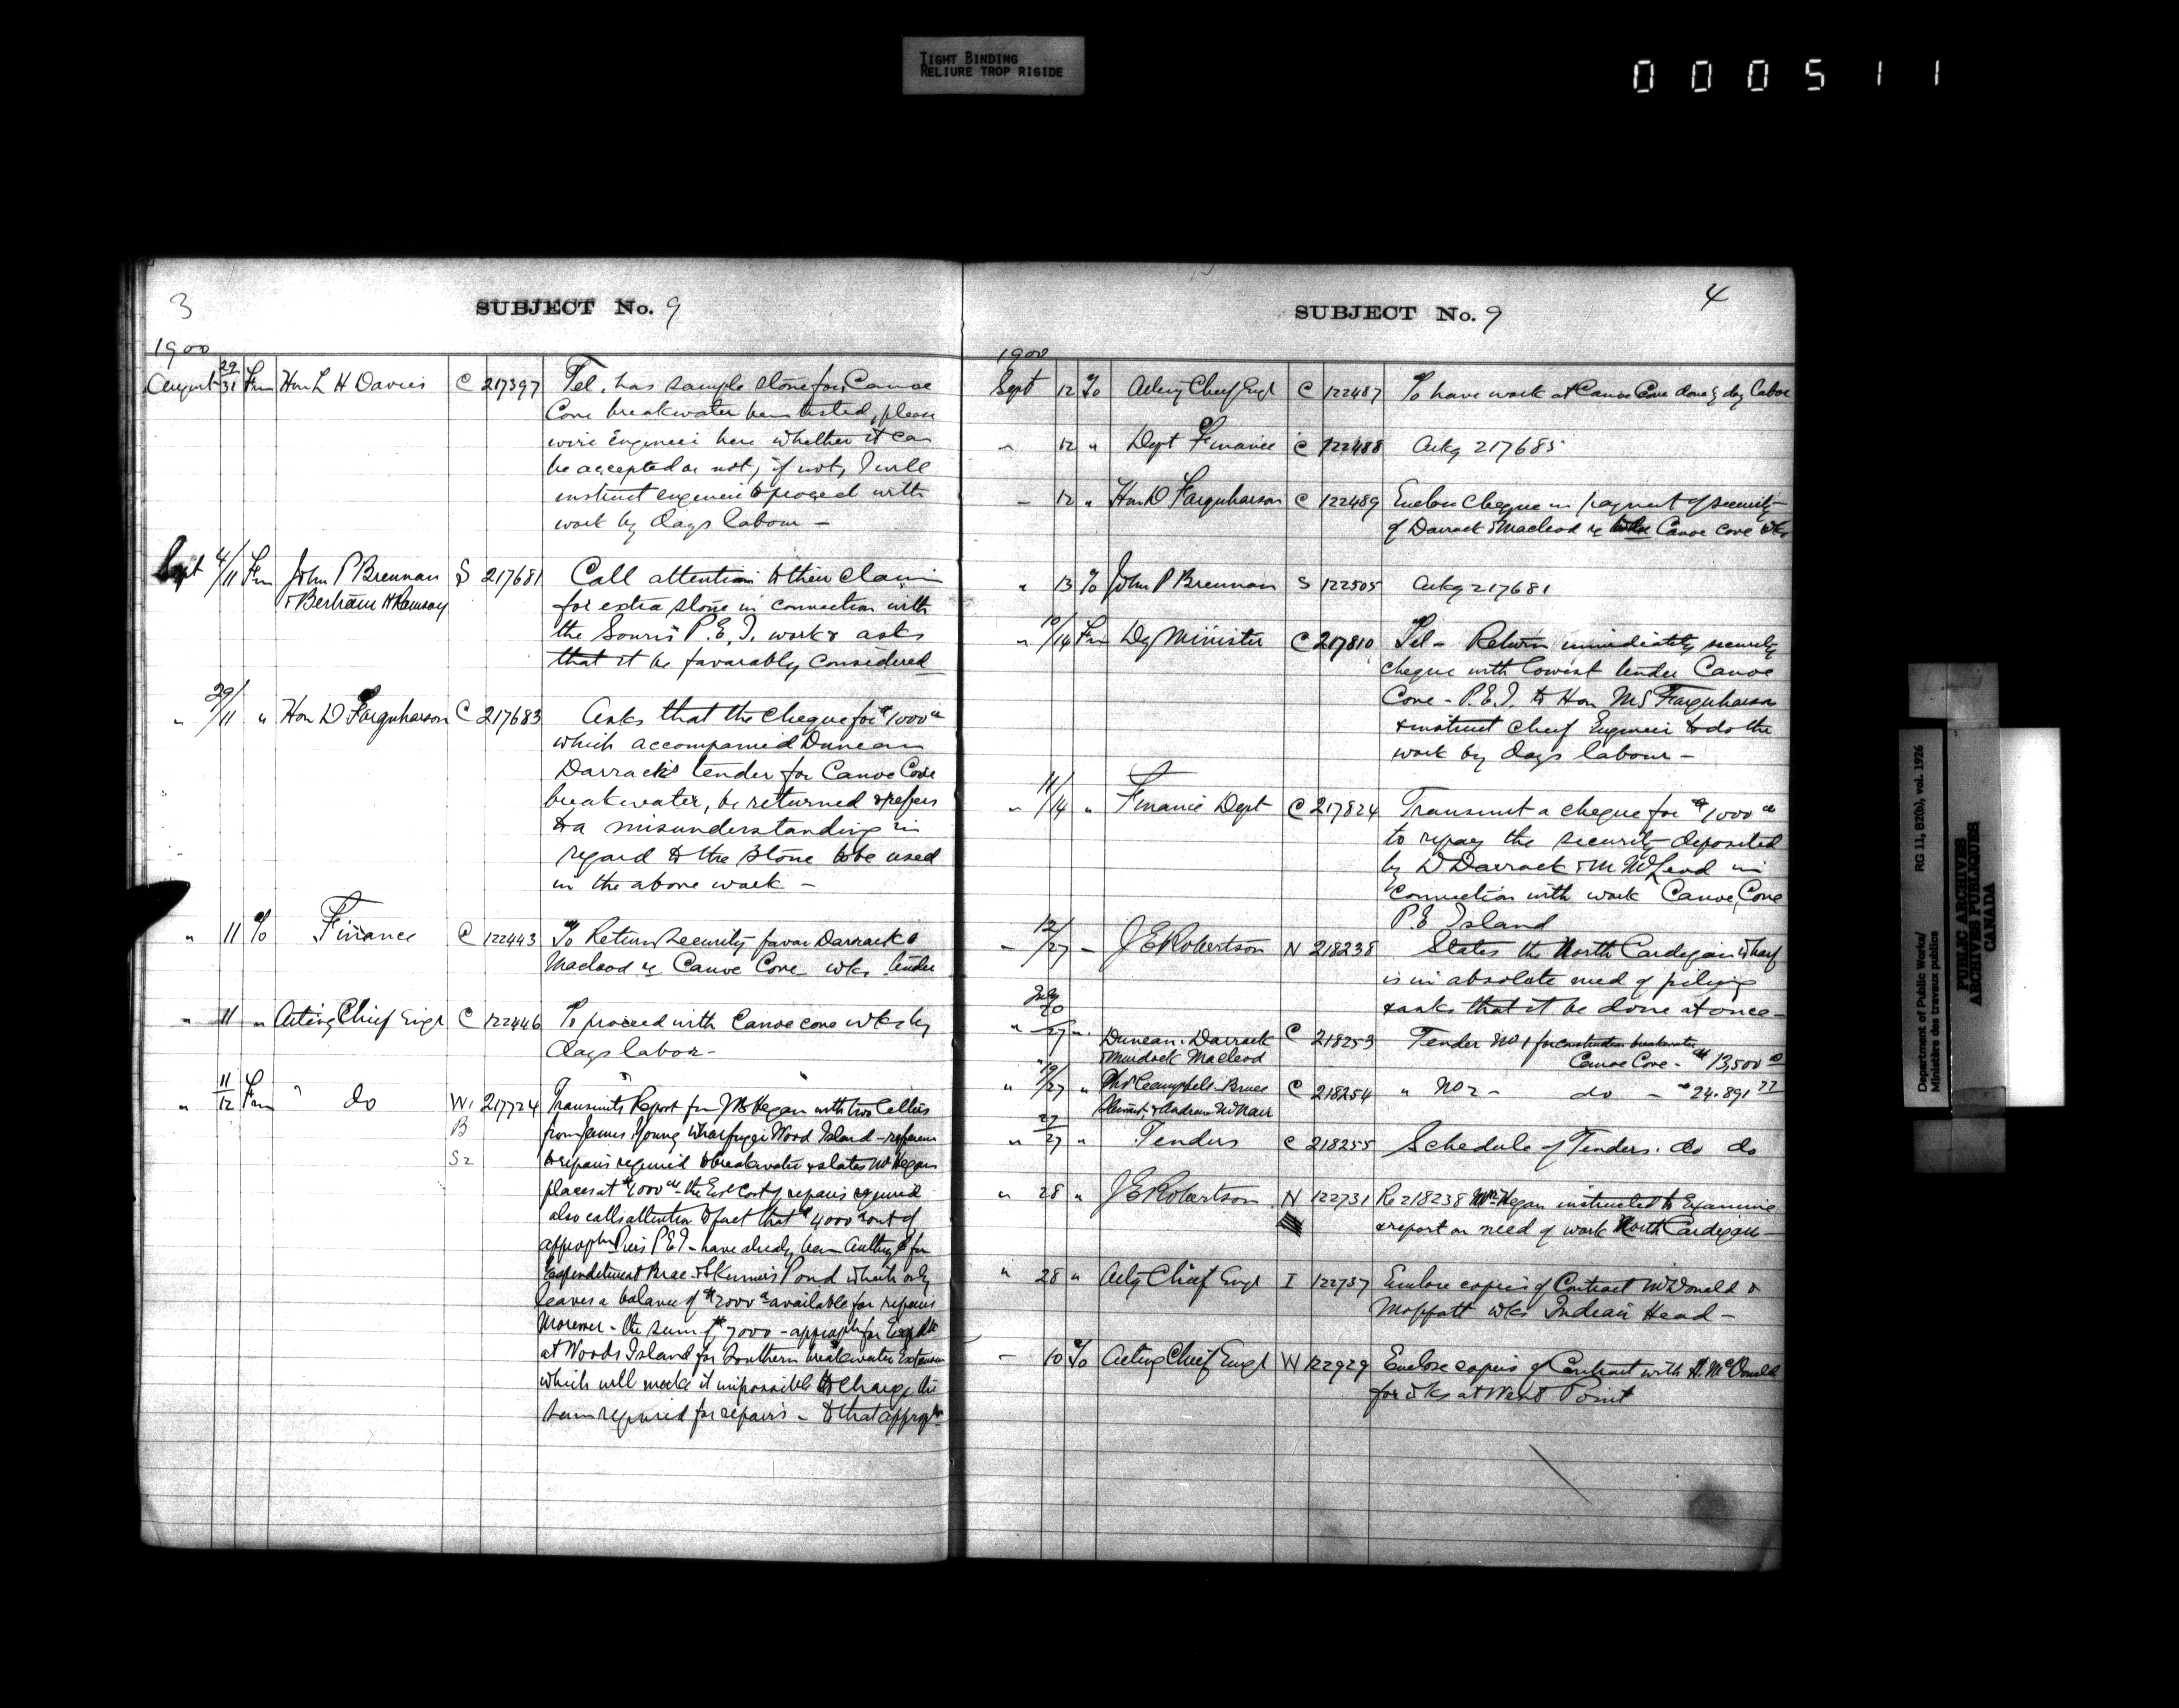 TIGHT BINDING
RELIURE TROP RIGIDE
000511
3
SUBJECT No. 9
1900
August 29/31 Fm Hon L H Davies C 217397 Tel. has sample stone for Canoe
Cove breakwater been tested, please
wire Engineer here whether it can
be accepted or not, if not, I will
instruct engineer to proceed with
work by days labour -
Sept 4/11 Fm John P Brennan S 217681 Call attention to their claim
& Bertram H Ramsay for extra stone in connection with
the Souris P.E.I. work & asks
that it be favorably considered
" 29/11 " Hon D Farquharson C 217683 Asks that the cheque for $1000 00
which accompanied Duncan
Darrack's tender for Canoe Cove
breakwater, be returned & refers
to a misunderstanding in
regard to the stone to be used
in the above work -
" 11 To Finance C 122443 To Return security favor Darrack &
Macleod re Canoe Cove wks tender
" 11 " Acting Chief Engr C 122446 To proceed with Canoe cove wks by
days labor -
" 11/12 Fm " do W1 217724 Transmits Report fm Mr Hegan with two letters
B from James Young wharfinger Wood Island - reference
S2 to repairs required to breakwater & states Mr Hegan
places at $1000 00 - the Est Cost of repairs required
also calls attention to fact that $4000 00 out of
appropn Piers P E I - have already been authzd for
Expenditure at Brae & Skinners Pond which only
leaves a balance of $2000 00 available for repairs
Moreover - the sum of $7000 - appropn for Expdtr
at Woods Island for Southern breakwater Extension
which will make it impossible to charge the
sum required for repairs - to that appropn
4
SUBJECT No. 9
1900
Sept 12 To Acting Chief Engr C 122487 To have work at Canoe Cove done by day labor
" 12 " Dept Finance C 122488 Ackg 217685
- 12 " Hon D Farquharson C 122489 Enclose Cheque in payment of security
of Darrack & Macleod re Canoe Cove wks
" 13 To John P Brennan S 122505 Ackg 217681
" 10/14 Fm Dy Minister C 217810 Tel - Return immediately security
cheque with lowest tender Canoe
Cove - P.E.I. to Hon Mr Farquharson
& instruct Chief Engineer to do the
work by days labour -
" 11/14 " Finance Dept C 217824 Transmit a cheque for $1000 00
to repay the security deposited
by D Darrack & M McLeod in
connection with work Canoe Cove
P.E Island
- 12/27 - J E Robertson N 218238 States the North Cardigan wharf
is in absolute need of piling
& asks that it be done at once -
July
20
" 27 " Duncan Darrack C 218253 Tender No 1 for construction breakwater
& Murdock Macleod Canoe Cove - $13,500 00
" 19/27 " Thos Campbell Bruce C 218254 " No 2 - do - $24.891 77
Stewart, & Andrew McNair
" 27/27 " Tenders C 218255 Schedule of Tenders. do do
" 28 " J E Robertson N 122731 Re 218238 Mr Hegan instructed to Examine
& report on need of work North Cardigan -
" 28 " Actg Chief Engr I 122737 Enclose copies of Contract McDonald &
Moffatt wks Indian Head -
- 10 To Acting Chief Engr W 122929 Enclose copies of Contract with H. McDonald
for wks at West Point
Department of Public Works/ RG 11, B2(b), vol. 1926
Ministère des travaux publics
PUBLIC ARCHIVES
ARCHIVES PUBLIQUES
CANADA